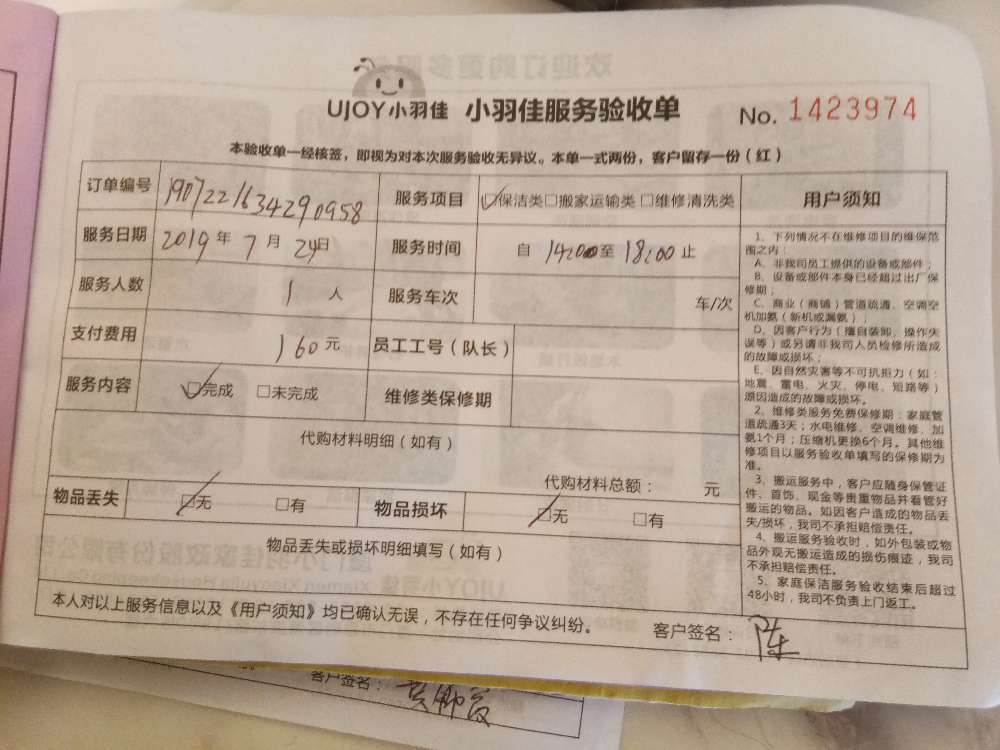 UJOY小羽佳 小羽佳服务验收单 No. 1423974
本验收单一经核签，即视为对本次服务验收无异议。本单一式两份，客户留存一份（红）
订单编号 1907221634290958 服务项目 ☑保洁类□搬家运输类□维修清洗类
服务日期 2019年7月24日 服务时间 自 14:00至18:00止
服务人数 1人 服务车次 车/次
支付费用 160元 员工工号（队长）
服务内容 ☑完成 □未完成 维修类保修期
代购材料明细（如有）
代购材料总额： 元
物品丢失 ☑无 □有 物品损坏 ☑无 □有
物品丢失或损坏明细填写（如有）
用户须知
1、下列情况不在维修项目的维保范
围之内：
A、非我司员工提供的设备或部件；
B、设备或部件本身已经超过出厂保
修期；
C、商业（商铺）管道疏通、空调空
机加氨（新机或漏氨）；
D、因客户行为（擅自装卸、操作失
误等）或另请非我司人员检修所造成
的故障或损坏；
E、因自然灾害等不可抗拒力（如：
地震、雷电、火灾、停电、短路等）
原因造成的故障或损坏。
2、维修类服务免费保修期：家庭管
道疏通3天；水电维修、空调维修、加
氨1个月；压缩机更换6个月。其他维
修项目以服务验收单填写的保修期为
准。
3、搬运服务中，客户应随身保管证
件、首饰、现金等贵重物品并看管好
搬运的物品。如因客户造成的物品丢
失/损坏，我司不承担赔偿责任。
4、搬运服务验收时，如外包装或物
品外观无搬运造成的损伤痕迹，我司
不承担赔偿责任。
5、家庭保洁服务验收结束后超过
48小时，我司不负责上门返工。
本人对以上服务信息以及《用户须知》均已确认无误，不存在任何争议纠纷。 客户签名：陈
客户签名：